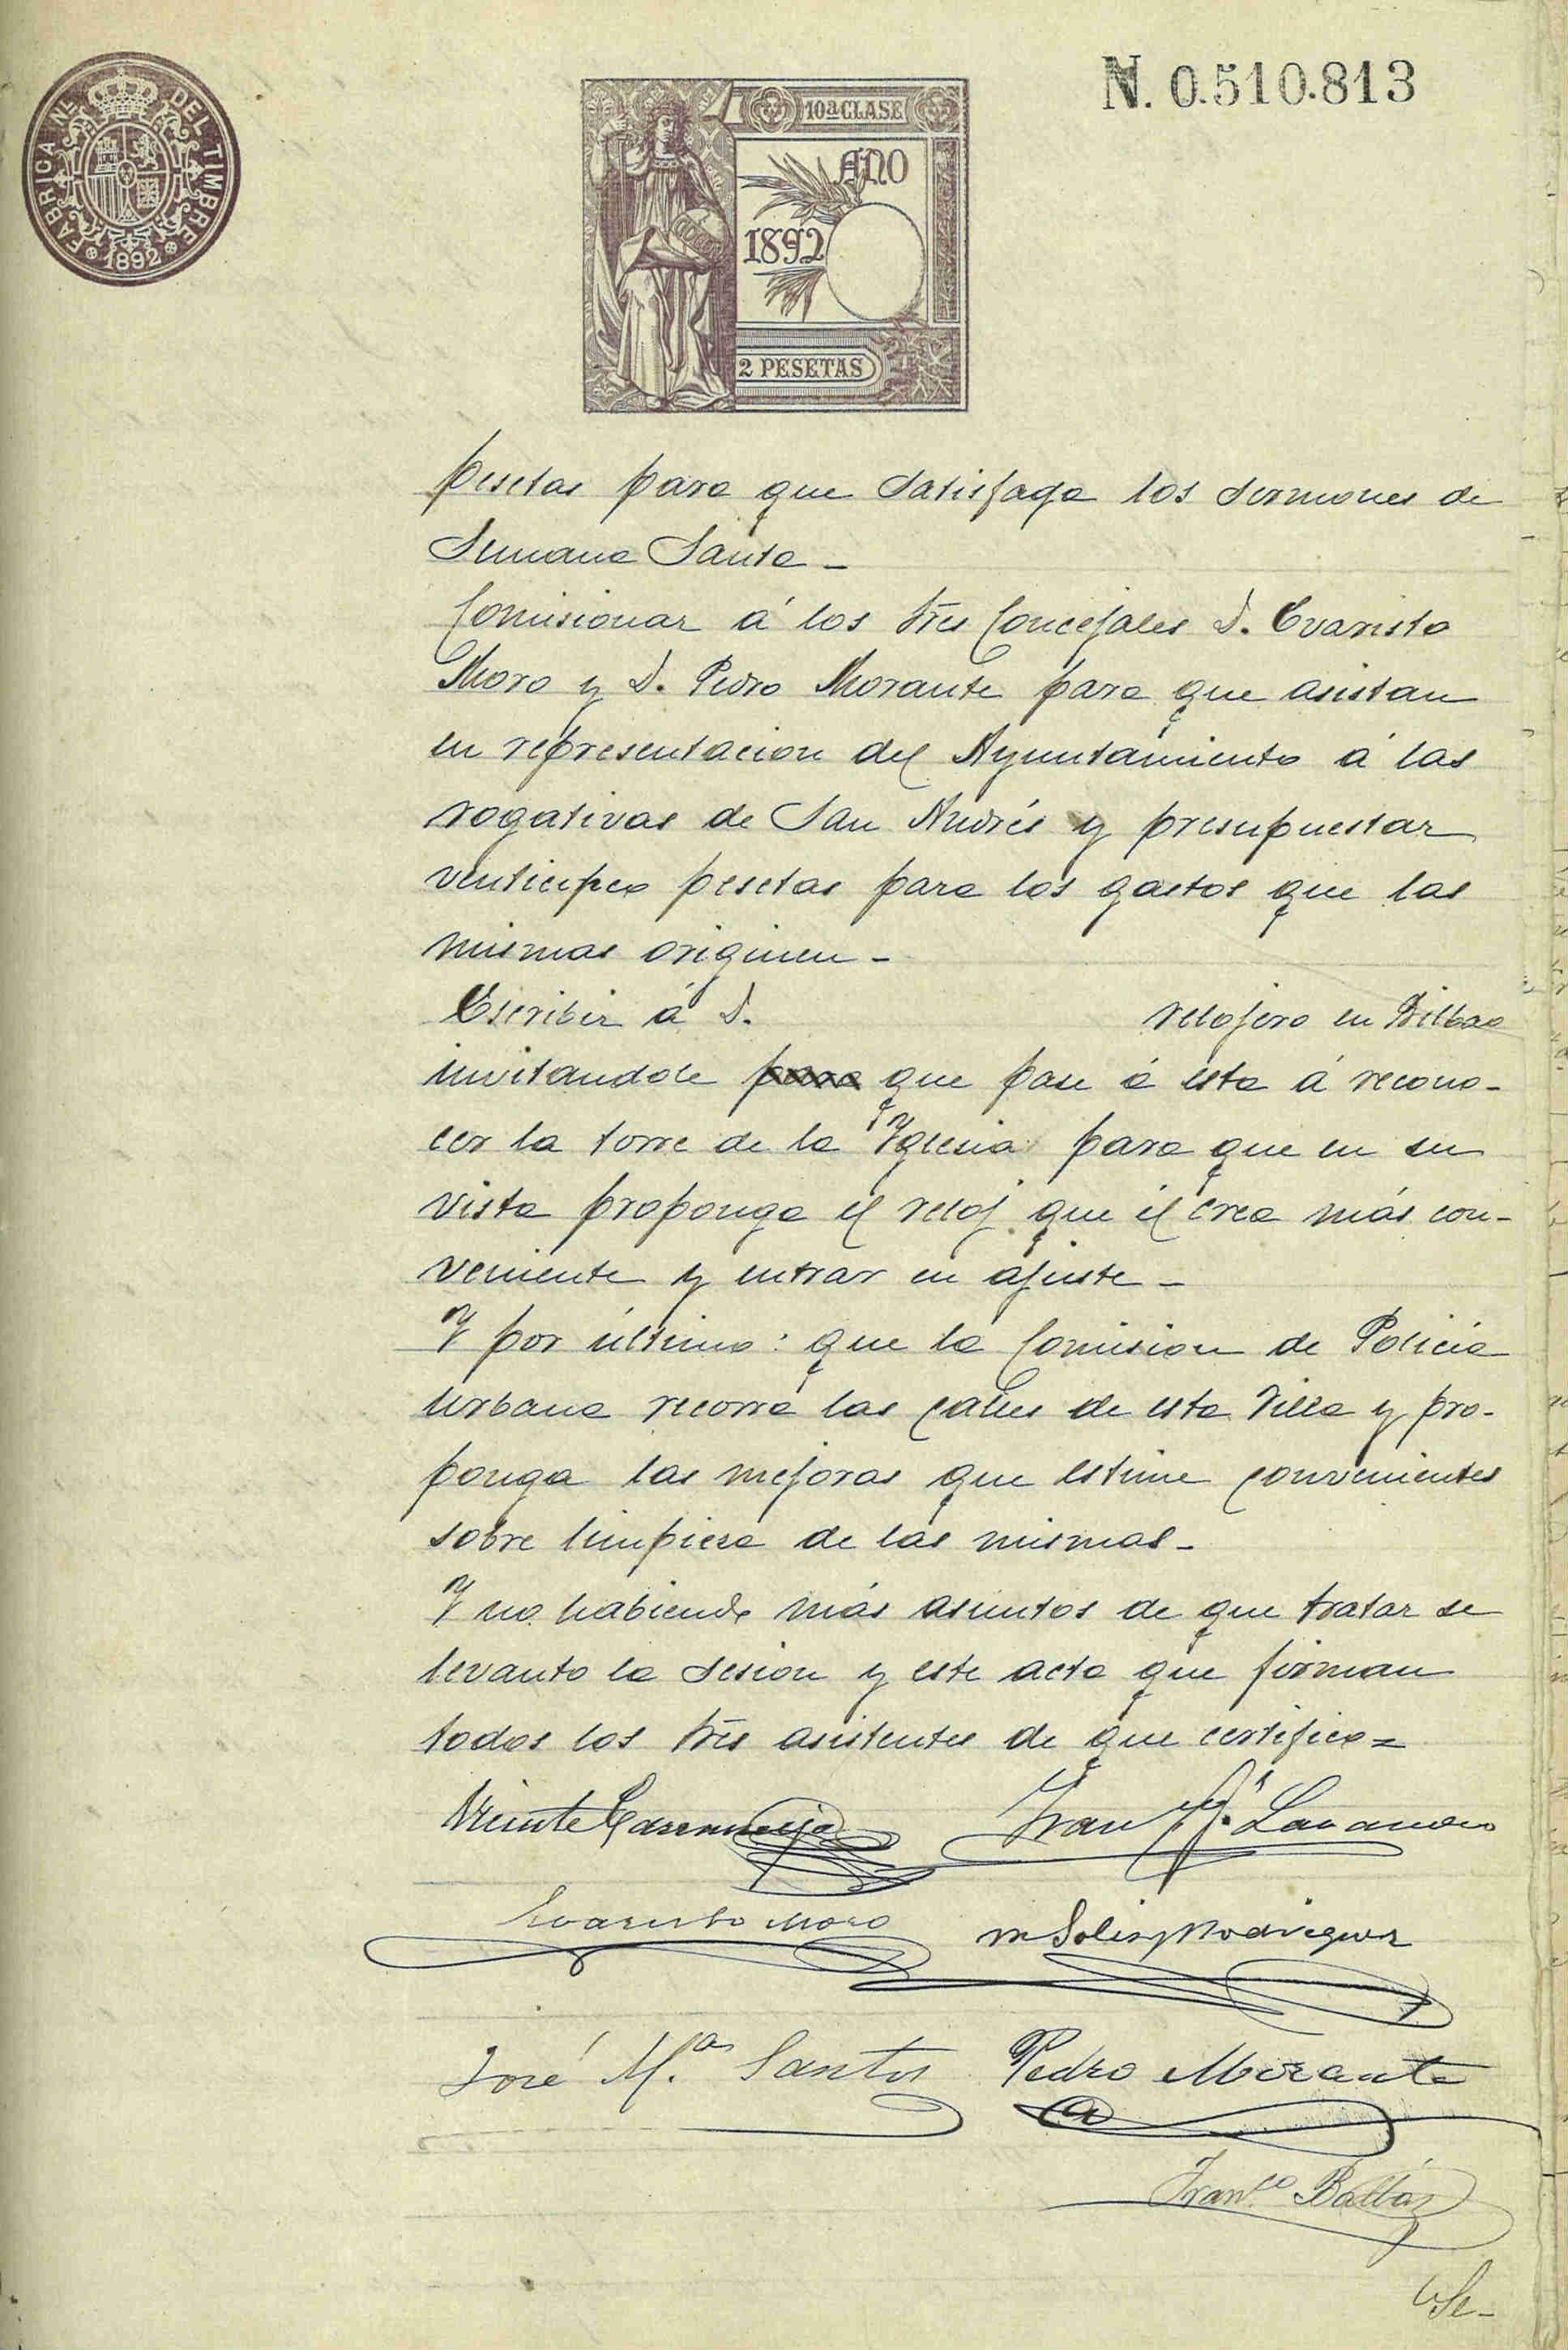 FABRICA NL. DEL TIMBRE
1892
10ª CLASE
AÑO
1892
2 PESETAS
N. 0.510.813
pesetas para que satisfaga los sermones de
Semana Santa -
Comisionar á los Sres Concejales D. Evaristo
Moro y D. Pedro Morante para que asistan
en representacion del Ayuntamiento á las
rogativas de San Andrés y presupuestar
venticinco pesetas para los gastos que las
mismas originen -
Escribir á D. relojero en Bilbao
invitandole para que pase á esta á recono-
cer la torre de la Yglesia para que en su
vista proponga el reloj que él crea más con-
veniente y entrar en ajuste -
Y por último: que la Comision de Policia
urbana recorra las calles de esta Villa y pro-
ponga las mejoras que estime convenientes
sobre limpieza de las mismas -
Y no habiendo más asuntos de que tratar se
levanto la sesion y este acta que firman
todos los Sres asistentes de que certifico =
Vicente
Evaristo Moro
M Solis y Rodriguez
José M.ª Santos
Pedro Morante
Franco. Balbás